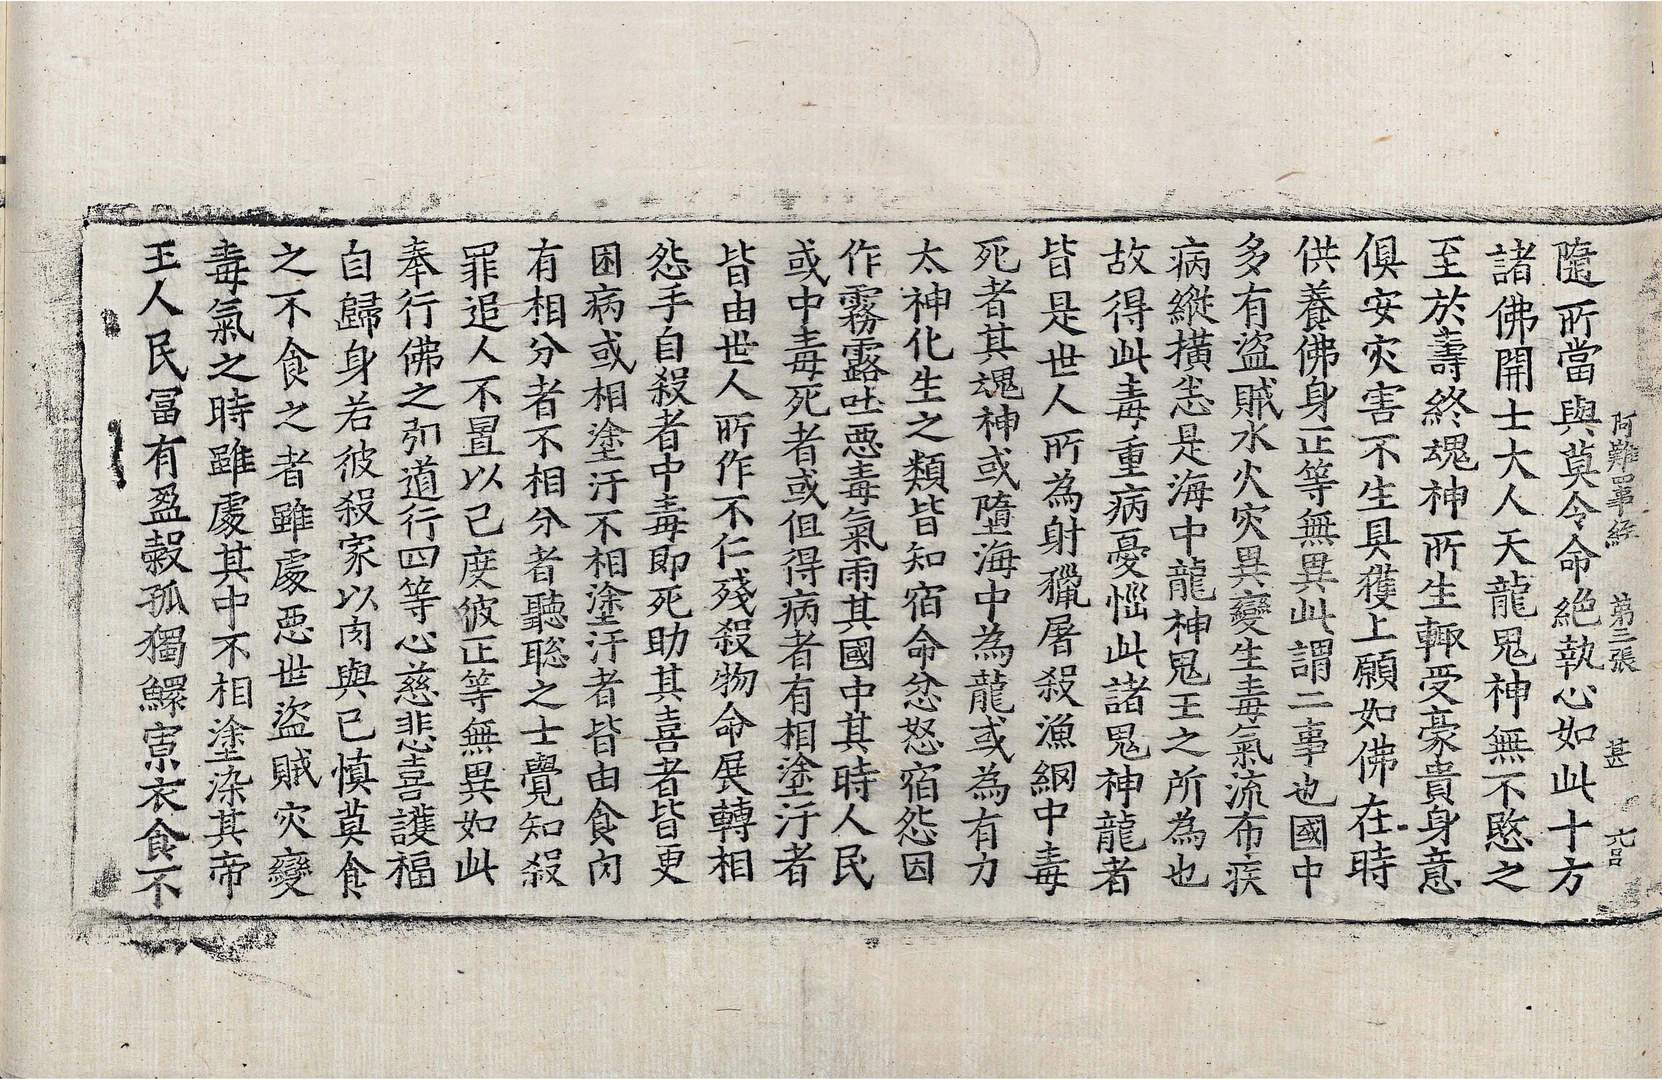 阿難四事經 第三張 甚
隨所當與莫令命絕執心如此十方
諸佛開士大人天龍鬼神無不愍之
至於壽終魂神所生輙受豪貴身意
俱安灾害不生具獲上願如佛在時
供養佛身正等無異此謂二事也國中
多有盜賊水火灾異變生毒氣流布疾
病縱撗恙是海中龍神鬼王之所為也
故得此毒重病憂惱此諸鬼神龍者
皆是世人所為射獵屠殺漁網中毒
死者其魂神或墮海中為龍或為有力
太神化生之類皆知宿命忿怒宿怨因
作霧露吐惡毒氣雨其國中其時人民
或中毒死者或但得病者有相塗汙者
皆由世人所作不仁殘殺物命展轉相
怨手自殺者中毒即死助其喜者皆更
困病或相塗汙不相塗汙者皆由食肉
有相分者不相分者聽聡之士覺知殺
罪追人不置以己度彼正等無異如此
奉行佛之明道行四等心慈悲喜護福
自歸身若彼殺家以肉與己慎莫食
之不食之者雖處惡世盜賊灾變
毒氣之時雖處其中不相塗染其帝
王人民冨有盈穀孤獨鰥寡衣食不